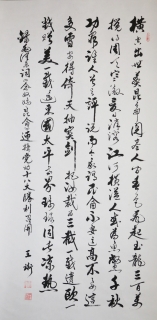 横空出世莽昆仑阅尽人间春色飞起玉龙三百万
搅得周天寒彻夏日消溶江河横溢人或为鱼鳖千秋
功罪谁人曾与评说而今我谓昆仑不要这高不要这
多雪安得倚天抽宝剑把汝裁为三截一截遗欧一
截赠美一截还东国太平世界环球同此凉热
录毛泽东词念奴娇昆仑迎接党十八大胜利召开
王